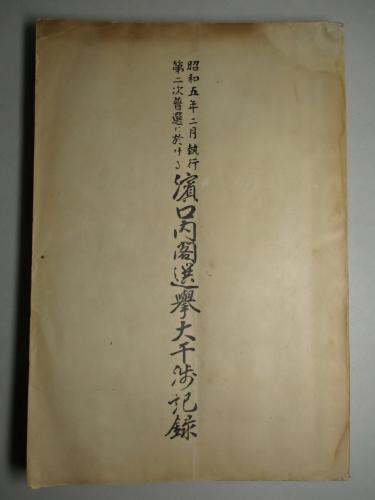 昭和五年二月執行
第二次普選に於ける
濱口内閣選擧大干渉記録